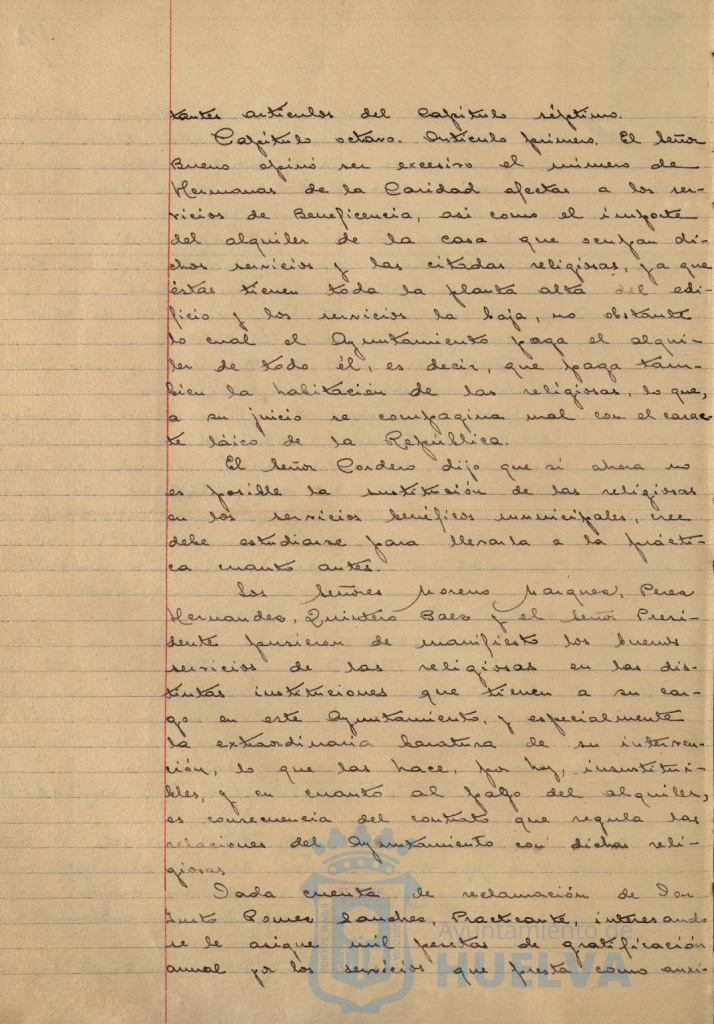 tantes artículos del Capítulo séptimo.
Capítulo octavo. Artículo primero. El Señor
Bueno opinó ser excesivo el número de
Hermanas de la Caridad afectas a los ser-
vicios de Beneficencia, así como el importe
del alquiler de la casa que ocupan di-
chos servicios y las citadas religiosas, ya que
éstas tienen toda la planta alta del edi-
ficio y los servicios la baja, no obstante
lo cual el Ayuntamiento paga el alqui-
ler de todo él, es decir, que paga tam-
bien la habitación de las religiosas, lo que,
a su juicio se compagina mal con el carac-
te láico de la República.
El Señor Cordero dijo que si ahora no
es posible la sustitución de las religiosas
en los servicios benéficos municipales, cree
debe estudiarse para llevarla a la prácti-
ca cuanto antes.
Los Señores Moreno Marquez, Perez
Hernandez, Quintero Baez y el Señor Presi-
dente pusieron de manifiesto los buenos
servicios de las religiosas en las dis-
tintas instituciones que tienen a su car-
go en este Ayuntamiento, y especialmente
la extraordinaria baratura de su interven-
ción, lo que las hace, por hoy, insustitui-
bles, y en cuanto al pago del alquiler,
es consecuencia del contrato que regula las
relaciones del Ayuntamiento con dichas reli-
giosas
Dada cuenta de reclamación de Don
Justo Landres, Practicante, interesando
se le asigne mil pesetas de gratificación
annal por los servicios que presta como auxi-
Ayuntamiento de
HUELVA